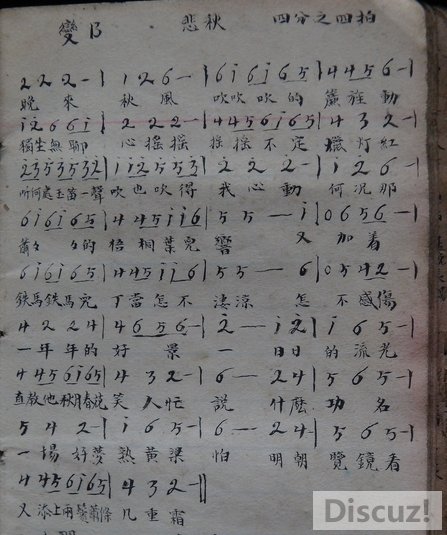 變B 悲秋 四分之四拍
2 2 2 - | 1 2 6 - | 6 i 6 i 6 5 | 4 4 5 6 - |
晚 來 秋 風 吹吹吹的 簾 旌 動
i 2 6 6 i | 2 2 2 - | 4 4 5 6 i 6 5 | 4 3 2 - |
獨坐無聊 心搖搖 搖搖不定 燈紅
2 3 5 3 5 3 2 | i i 2 5 5 3 | 2 2 2 - | i 2 6 - |
听何處玉笛一聲 吹也吹得 我心動 何况那
6 i 6 i 6 5 | 4 4 5 i i 6 | 5 5 - i | 0 6 5 6 - |
蕭々 々的 梧桐葉兒 響 又 加着
6 i 6 i 6 5 | 4 4 5 i i 6 | 5 5 - 6 | 0 5 4 2 - |
鉄馬鉄馬兒 丁當怎不 淒涼 怎 不感傷
4 2 2 4 | 4 6 5 6 - | 2 - i 2 | i 6 5 - |
一年年的 好景 一 日日 的流光
4 4 5 6 i 6 5 | 4 3 2 - | 6 - - 2 4 | 5 6 5 - |
直教他秋月春花 笑人忙 說 什麽 功名
5 4 2 - | i 6 5 - | 6 - - 2 4 | 5 6 5 - |
一場好夢 熟黃粱 怕 明朝 覽鏡看
4 4 5 6 i 6 5 | 4 3 2 - ||
又添上兩鬢蕭條 几重霜
Discuz!